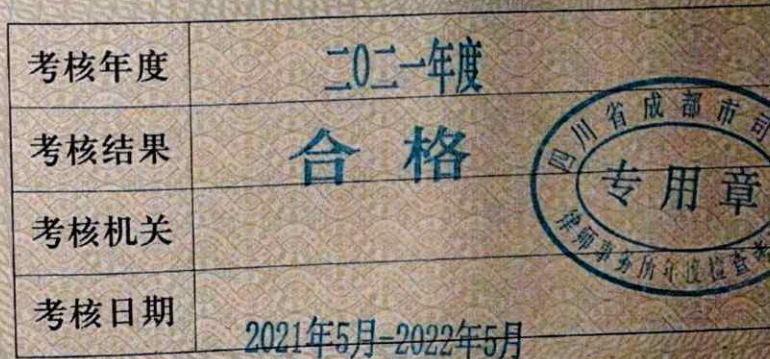 考核年度 二0二一年度
考核结果 合格
考核机关
考核日期 2021年5月-2022年5月
四川省成都市司
专用章
律师事务所年度检查考